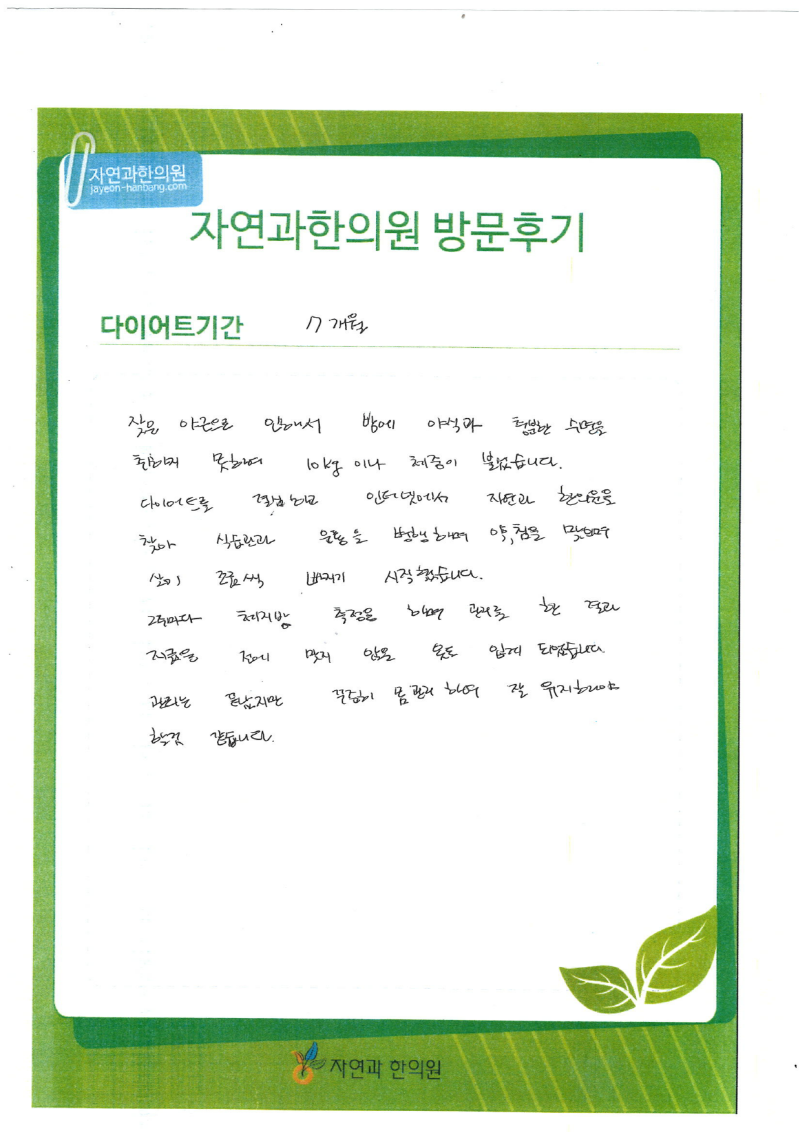 자연과한의원
jayeon-hanbang.com
자연과한의원 방문후기
다이어트기간 7개월
잦은 야근으로 인해서 밤에 야식과 충분한 수면을
취하지 못하여 10kg 이나 체중이 불었습니다.
다이어트를 결심하고 인터넷에서 자연과 한의원을
찾아 식습관과 운동을 병행하며 약,침을 맞으며
살이 조금씩 빠지기 시작했습니다.
2주마다 체지방 측정을 하며 관리를 한 결과
지금은 전에 맞지 않은 옷도 입게 되었습니다.
관리는 끝났지만 꾸준히 몸관리 하여 잘 유지해야
할것 같습니다.
자연과 한의원